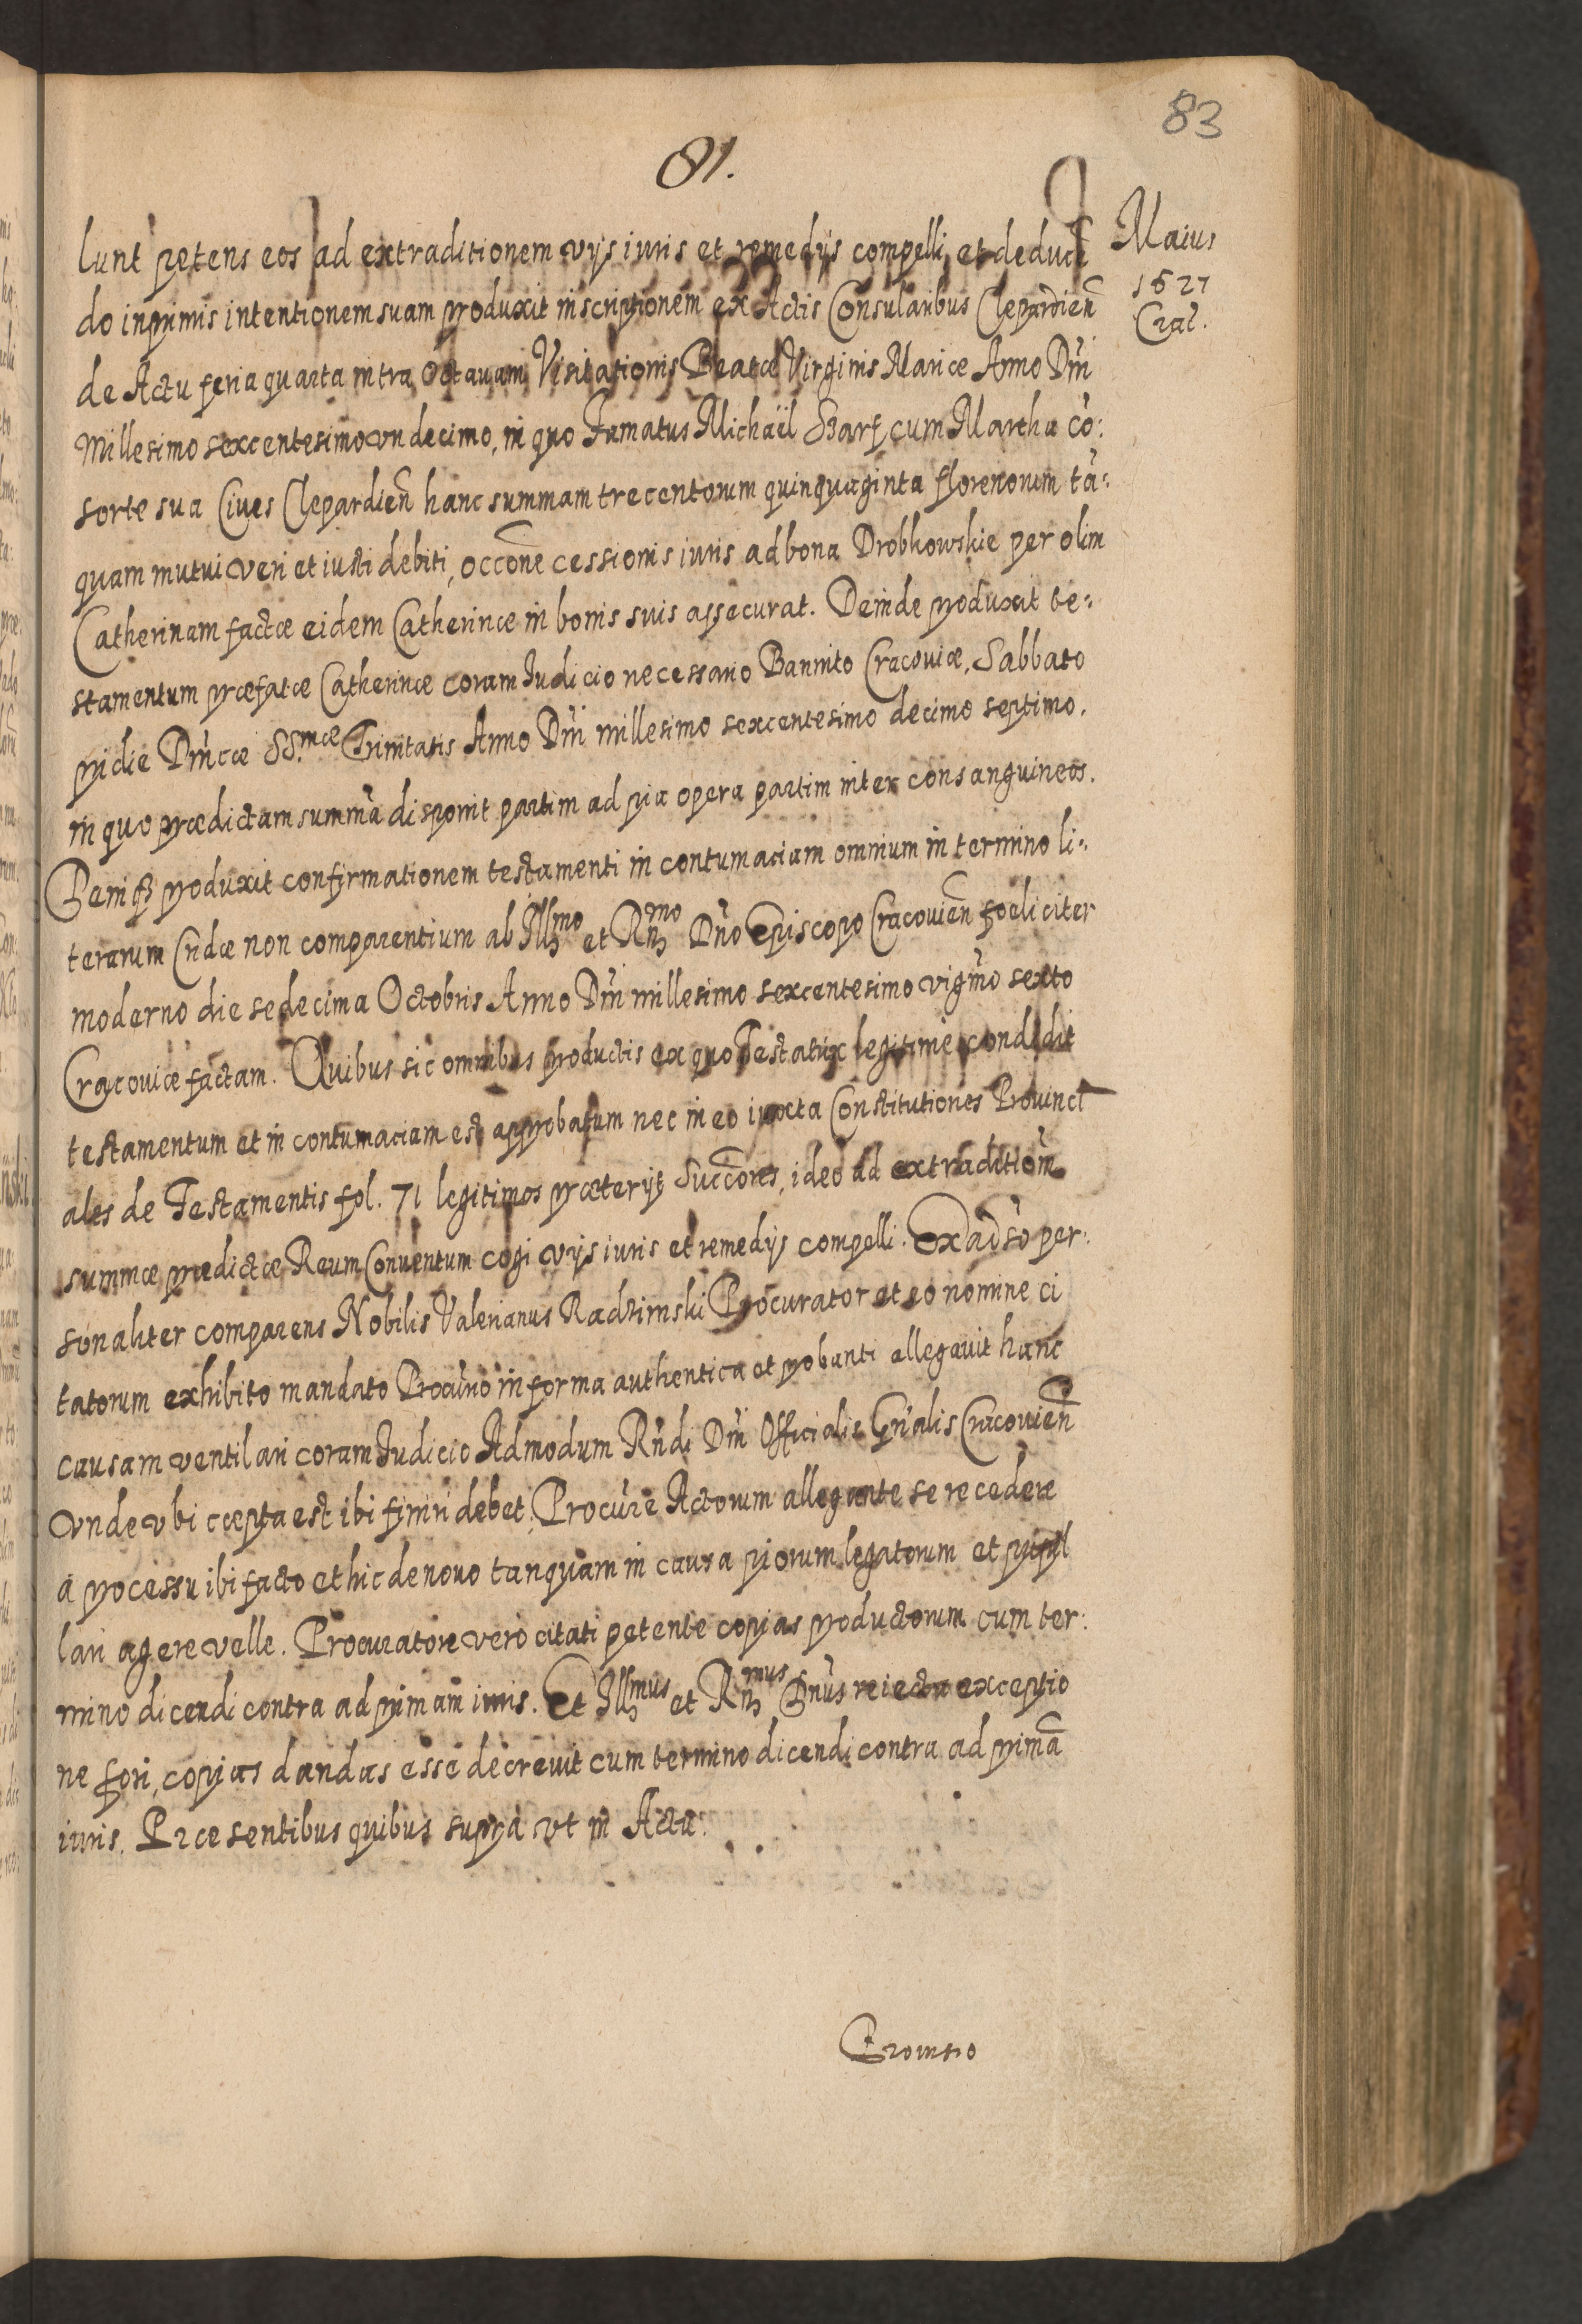 83
81.
Maius
1627
Crac.
lunt petens eos ad extraditionem vijs iuris et remedijs compelli, et deducē
do inprimis intentionem suam produxit inscriptionem ex Actis Consularibus Clepardien̄
de Actu feria quarta intra Octauam Visitationis Beatæ Virginis Mariæ Anno Dn̄i
Millesimo sexcentesimo vndecimo, in quo Famatus Michaël Szarf, cum Martha cō:
sorte sua Ciues Clepardien̄ hanc summam trecentorum quinquaginta florenorum tā:
quam mutui veri et iusti debiti, occ͠one cessionis iuris ad bona Drobkowskie per olim
Catherinam factæ eidem Catherinæ in bonis suis assecurat. Deinde produxit te:
stamentum præfatæ Catherinæ coram Iudicio necessario Bannito Cracouiæ, Sabbato
pridie Dn̄icæ SS.mæ Trinitatis Anno Dn̄i millesimo sexcentesimo decimo septimo,
in quo prædictam summā disponit partim ad pia opera partim inter consanguineos.
Deniq3 produxit confirmationem testamenti in contumaciam omnium in termino li:
terarum Cn̄dæ non comparentium ab Illmo et Rn̄mo Dn̄o Episcopo Cracouien̄ fœliciter
moderno die sedecima Octobris Anno Dn̄i millesimo sexcentesimo vigmō sexto
Cracouiæ factam. Quibus sic omnibus productis ex quo Testatrix legitimè condidit
testamentum et in contumaciam est approbatum nec in eo iuxta Constitutiones Prouinci
ales de Testamentis fol. 71 legitimos præterijt Succ͠ores, ideo ad extraditionē
summæ prædictæ Reum Conuentum cogi vijs iuris et remedijs compelli. Ex adu͠so per:
sonaliter comparens Nobilis Valerianus Radzimski Procurator et eo nomine ci
tatorum exhibito mandato Procur̄no in forma authentica et probanti allegauit hanc
causam ventilari coram Iudicio Admodum Rn̄di Dn̄i Officialis Gn̄alis Cracouien̄
vnde vbi cæpta est ibi finiri debet, Procur̄e Actorum allegante se recedere
à processu ibi facto et hic denouo tanquam in causa piorum legatorum et pupil
lari agere velle. Procuratore verò citati petente copias productorum cum ter:
mino dicendi contra ad primam iuris. Et Illmus et Rn̄mus Dn̄us reiecta exceptio
ne fori, copias dandas esse decreuit cum termino dicendi contra ad primā
iuris. Præsentibus quibus suprà vt in Actu.
Prouisio